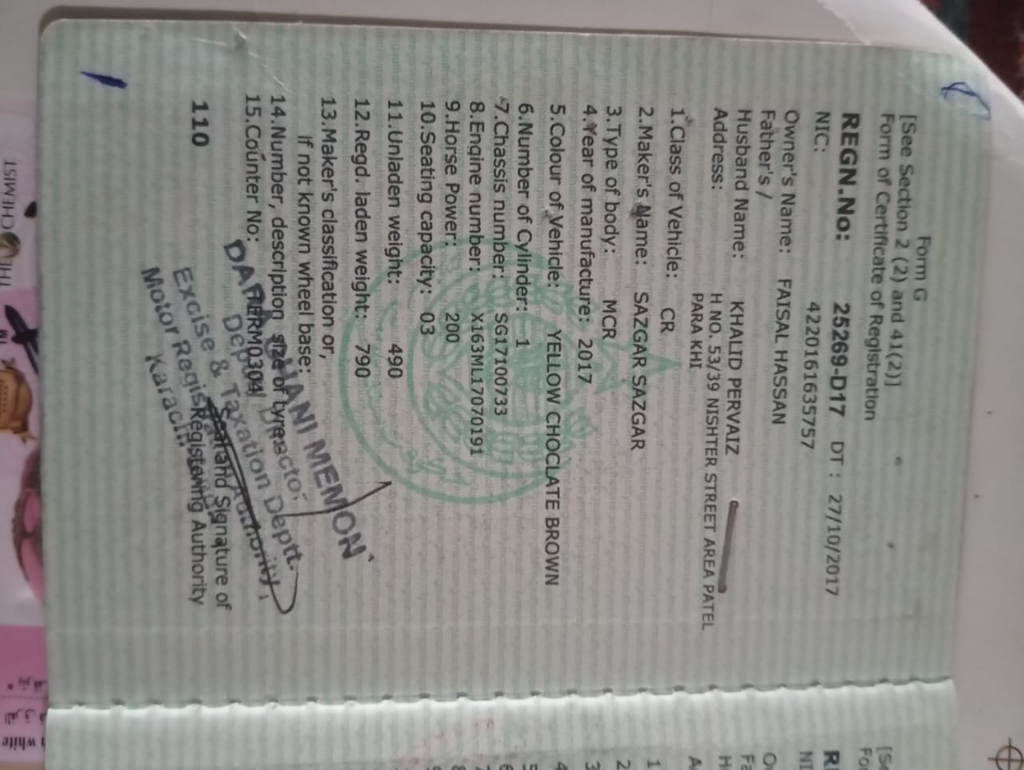 Form G
[See Section 2 (2) and 41(2)]
Form of Certificate of Registration
REGN.No: 25269-D17 DT : 27/10/2017
NIC: 4220161635757
Owner's Name: FAISAL HASSAN
Father's /
Husband Name: KHALID PERVAIZ
Address: H NO. 53/39 NISHTER STREET AREA PATEL
PARA KHI
1.Class of Vehicle: CR
2.Maker's Name: SAZGAR SAZGAR
3.Type of body: MCR
4.Year of manufacture: 2017
5.Colour of Vehicle: YELLOW CHOCLATE BROWN
6.Number of Cylinder: 1
7.Chassis number: SG17100733
8.Engine number: X163ML17070191
9.Horse Power: 200
10.Seating capacity: 03
11.Unladen weight: 490
12.Regd. laden weight: 790
13.Maker's classification or,
If not known wheel base:
14.Number, description size of tyre
15.Counter No: TERM0304
110
Seal and Signature of
Registering Authority
MEMON
Director
Excise & Taxation Deptt.
Motor Registration Authority
Karachi
CHEMIST
white